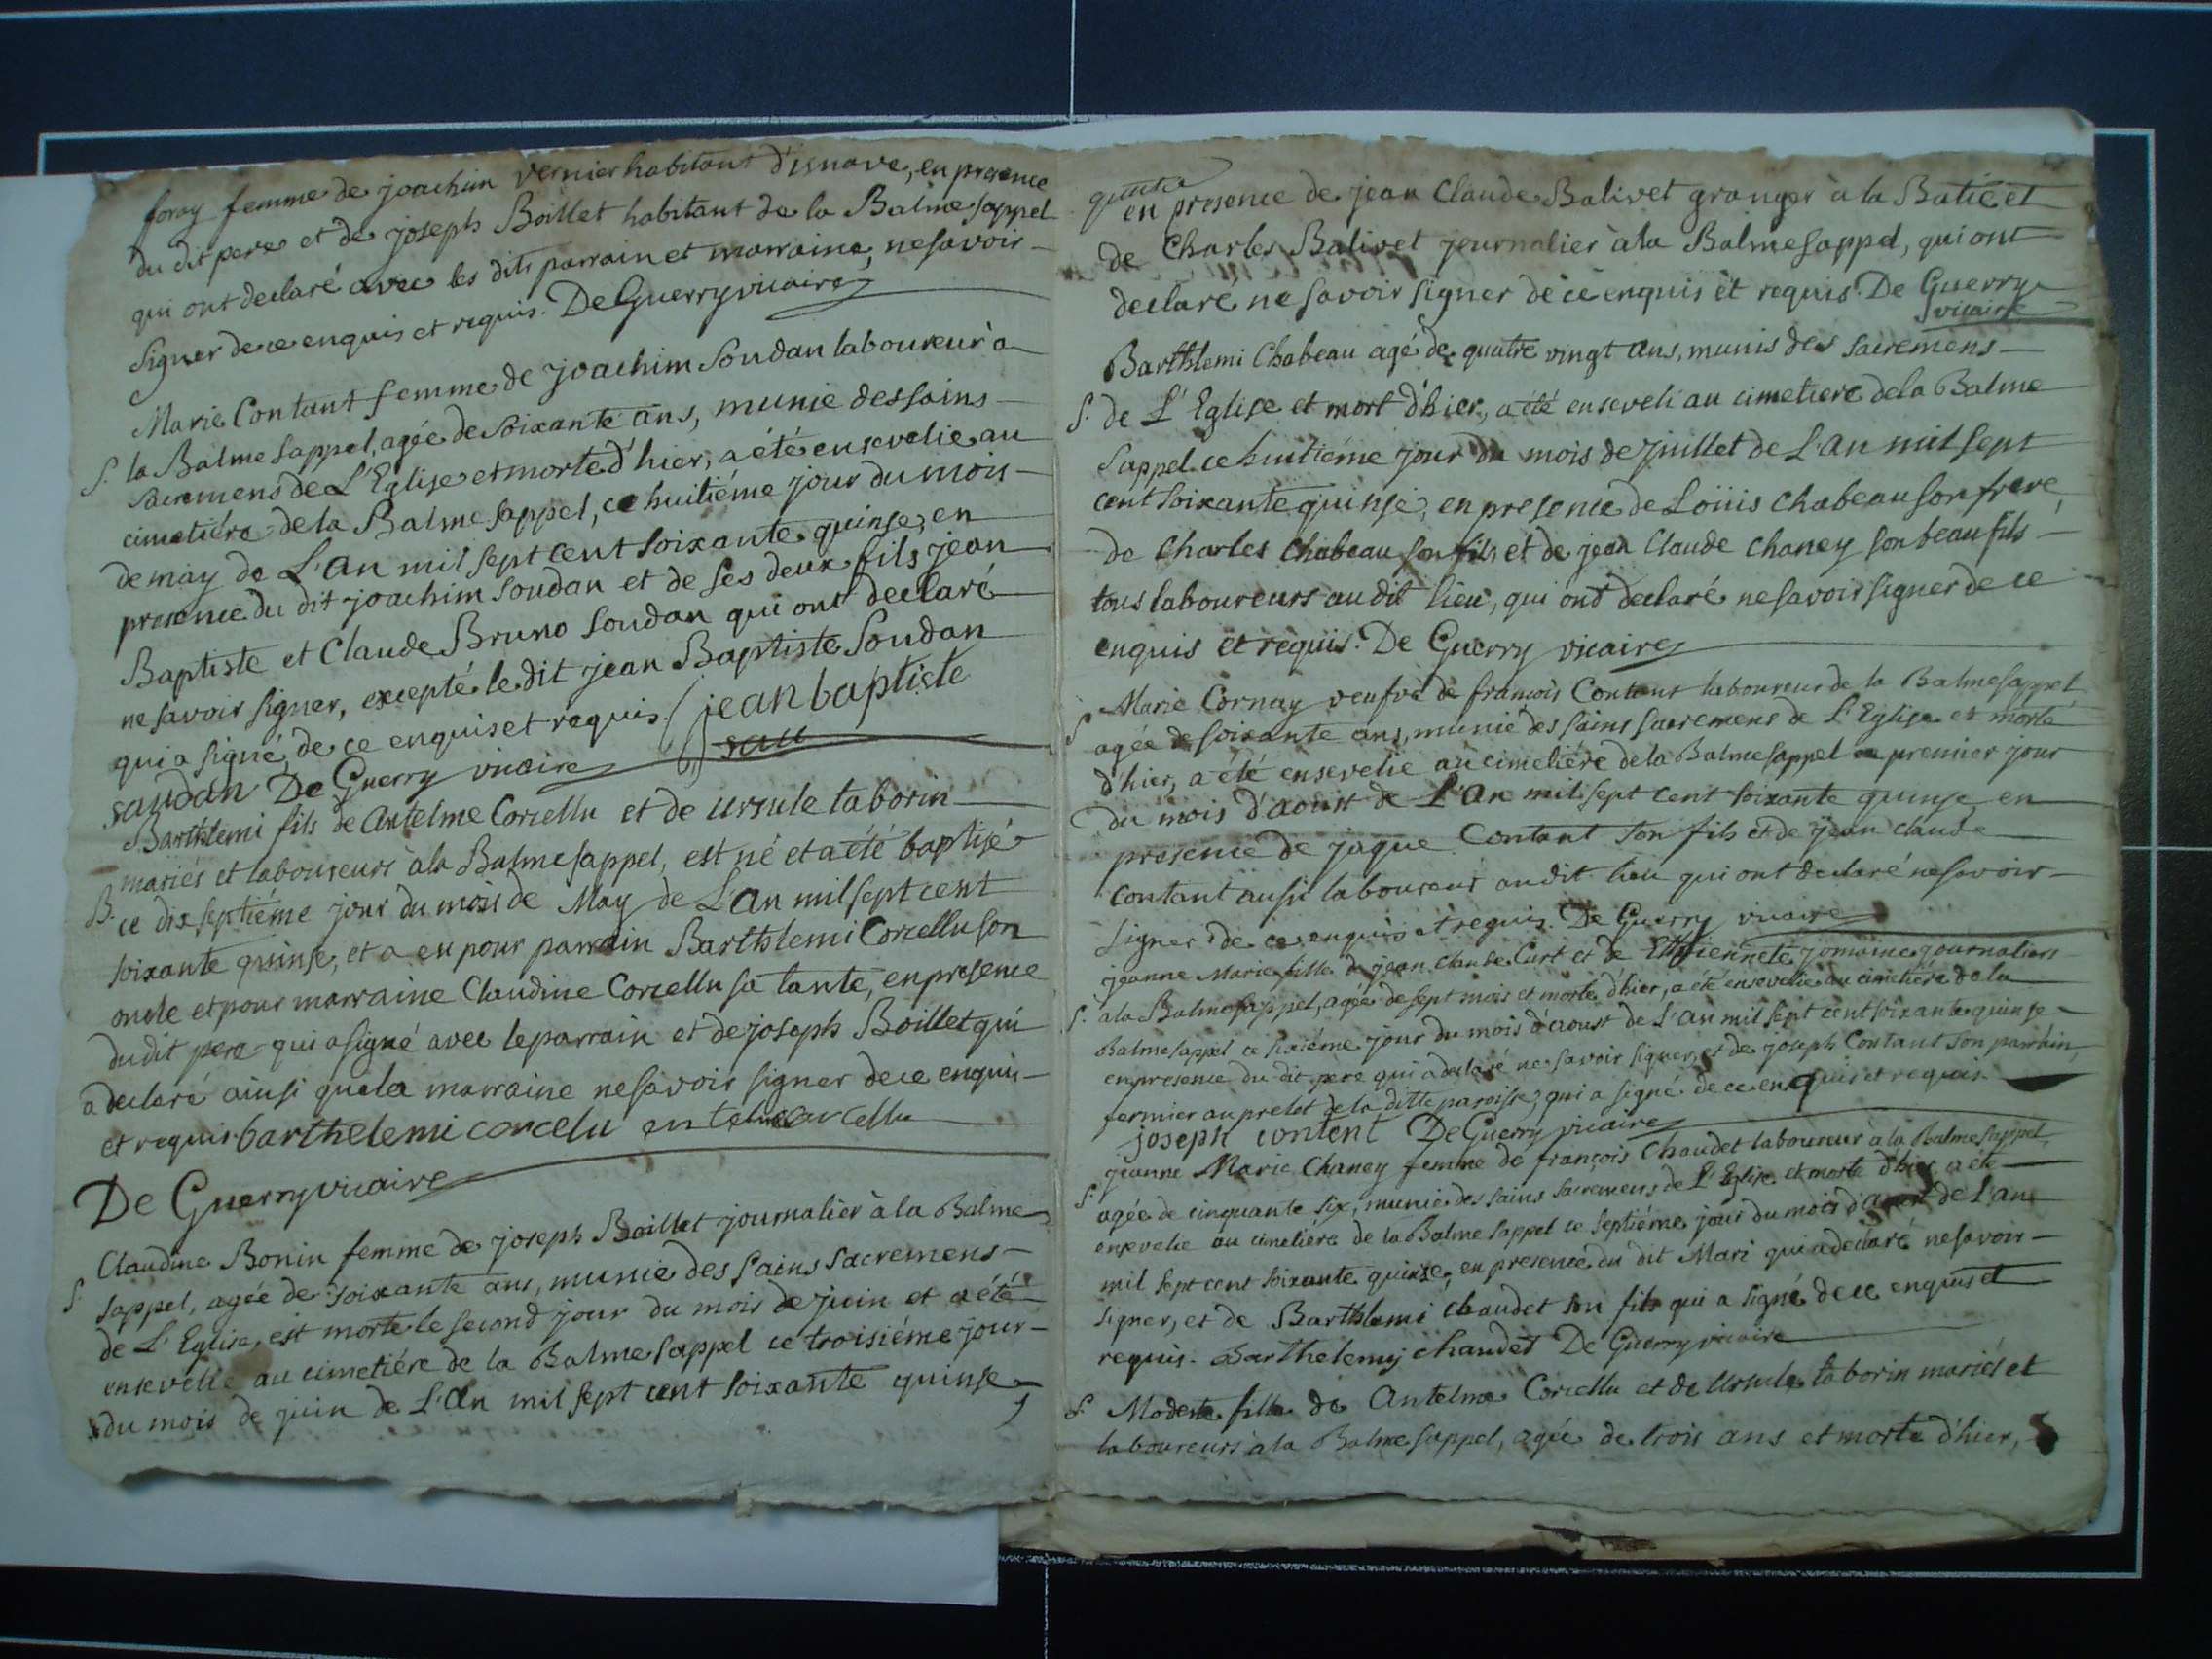 foray femme de joachim vernier habitant d'isnave, en presence
du dit pere et de joseph Boillet habitant de la Balme sappel
qui ont declaré avec les dits parrain et marraine, ne savoir
signer de ce enquis et requis. De Guerry vicaire
Marie Contant femme de joachim Soudan laboureur à
S. la Balme sappel, agée de soixante ans, munie des sains
sacremens de L'Eglise et morte d'hier, a été ensevelie au
cimetiére de la Balme sappel, ce huitiéme jour du mois
de may de L'an mil sept cent soixante quinse, en
presence du dit joachim Soudan et de ses deux fils jean
Baptiste et Claude Bruno Soudan qui ont declaré
ne savoir signer, excepté le dit jean Baptiste Soudan
qui a signé, de ce enquis et requis. jean baptiste
sau
saudan De Guerry vicaire
Barthlemi fils de Antelme Corcellu et de ursule taborin
mariés et laboureurs à la Balme sappel, est né et a été baptisé
B. ce dix septiéme jour du mois de May de L'an mil sept cent
soixante quinse, et a eu pour parrain Barthlemi Corcellu son
oncle et pour marraine Claudine Corcellu sa tante, en presence
du dit pere qui a signé avec le parrain et de joseph Boillet qui
a declaré ainsi que la marraine ne savoir signer de ce enquis
et requis. barthelemi corcelu antelme corcellu
De Guerry vicaire
Claudine Bonin femme de joseph Boillet journalier à la Balme
S. sappel, agée de soixante ans, munie des sains sacremens
de L'Eglise, est morte le second jour du mois de juin et a été
ensevelie au cimetiére de la Balme sappel ce troisiéme jour
du mois de juin de L'an mil sept cent soixante quinse
en presence de jean Claude Balivet granger à la Batie et
de Charles Balivet journalier à la Balme sappel, qui ont
declaré ne savoir signer de ce enquis et requis. De Guerry
vicaire
Barthlemi Chabeau agé de quatre vingt ans, munis des sacremens
S. de L'Eglise et mort d'hier, a été enseveli au cimetiere de la Balme
sappel ce huitiéme jour du mois de juillet de L'an mil sept
cent soixante quinse, en presence de Loüis Chabeau son frere,
de Charles Chabeau son fils et de jean Claude Chaney son beau fils
tous laboureurs au dit lieu, qui ont declaré ne savoir signer de ce
enquis et requis. De Guerry vicaire
Marie Cornay veufve de françois Contant laboureur de la Balme sappel,
S agée de soixante ans, munie des sains sacremens de L'Eglise et morte
d'hier, a été ensevelie au cimetiére de la Balme sappel ce premier jour
du mois d'aoust de L'an mil sept cent soixante quinse en
presence de jaque Contant son fils et de jean claude
contant aussi laboureur au dit lieu qui ont declaré ne savoir
signer de ce enquis et requis. De Guerry vicaire
jeanne Marie fille de jean Claude Curt et de Etiennete journaliers
S. a la Balme sappel, agée de sept mois et morte d'hier, a été ensevelie au cimetiere de la
Balme sappel ce sixiéme jour du mois d'aoust de L'an mil sept cent soixante quinse
en presence du dit pere qui a declaré ne savoir signer, et de joseph Contant son parrain,
fermier au prelot de la ditte paroisse, qui a signé de ce enquis et requis.
joseph content De Guerry vicaire
jeanne Marie Chaney femme de françois Chaudet laboureur à la Balme sappel,
S. agée de cinquante six, munie des sains sacremens de L'Eglise et morte d'hier, a été
ensevelie au cimetiére de la Balme sappel ce septiéme jour du mois d'aoust de l'an
mil sept cent soixante quinze, en presence du dit Mari qui a declaré ne savoir
signer, et de Barthlemi chaudet son fils qui a signé de ce enquis et
requis. Barthelemy chaudet De Guerry vicaire
S. Modeste fille de Antelme Corcellu et de Ursule taborin mariés et
laboureurs à la Balme sappel, agée de trois ans et morte d'hier,